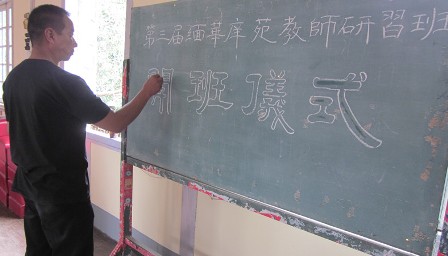 第三屆缅華库苑教師研習班
開班儀式